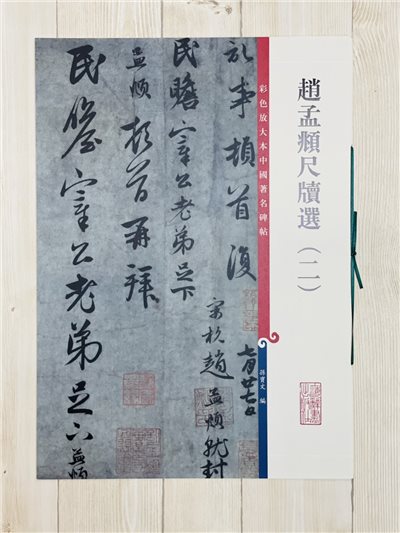 趙孟頫尺牘選（二）
彩色放大本中國著名碑帖
孫寶文 編
記事頓首復
民瞻宰公老弟足下
杭趙孟頫 封
孟頫頓首再拜
民瞻宰公老弟足下孟頫